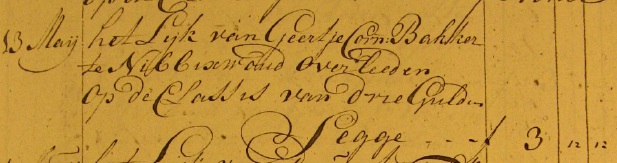 13 Maij het Lijk van Geertje Corn: Bakker
te Nibbixwoud overleeden
op de Classis van drie Gulden
Segge - - - f 3 " "
het Lijk